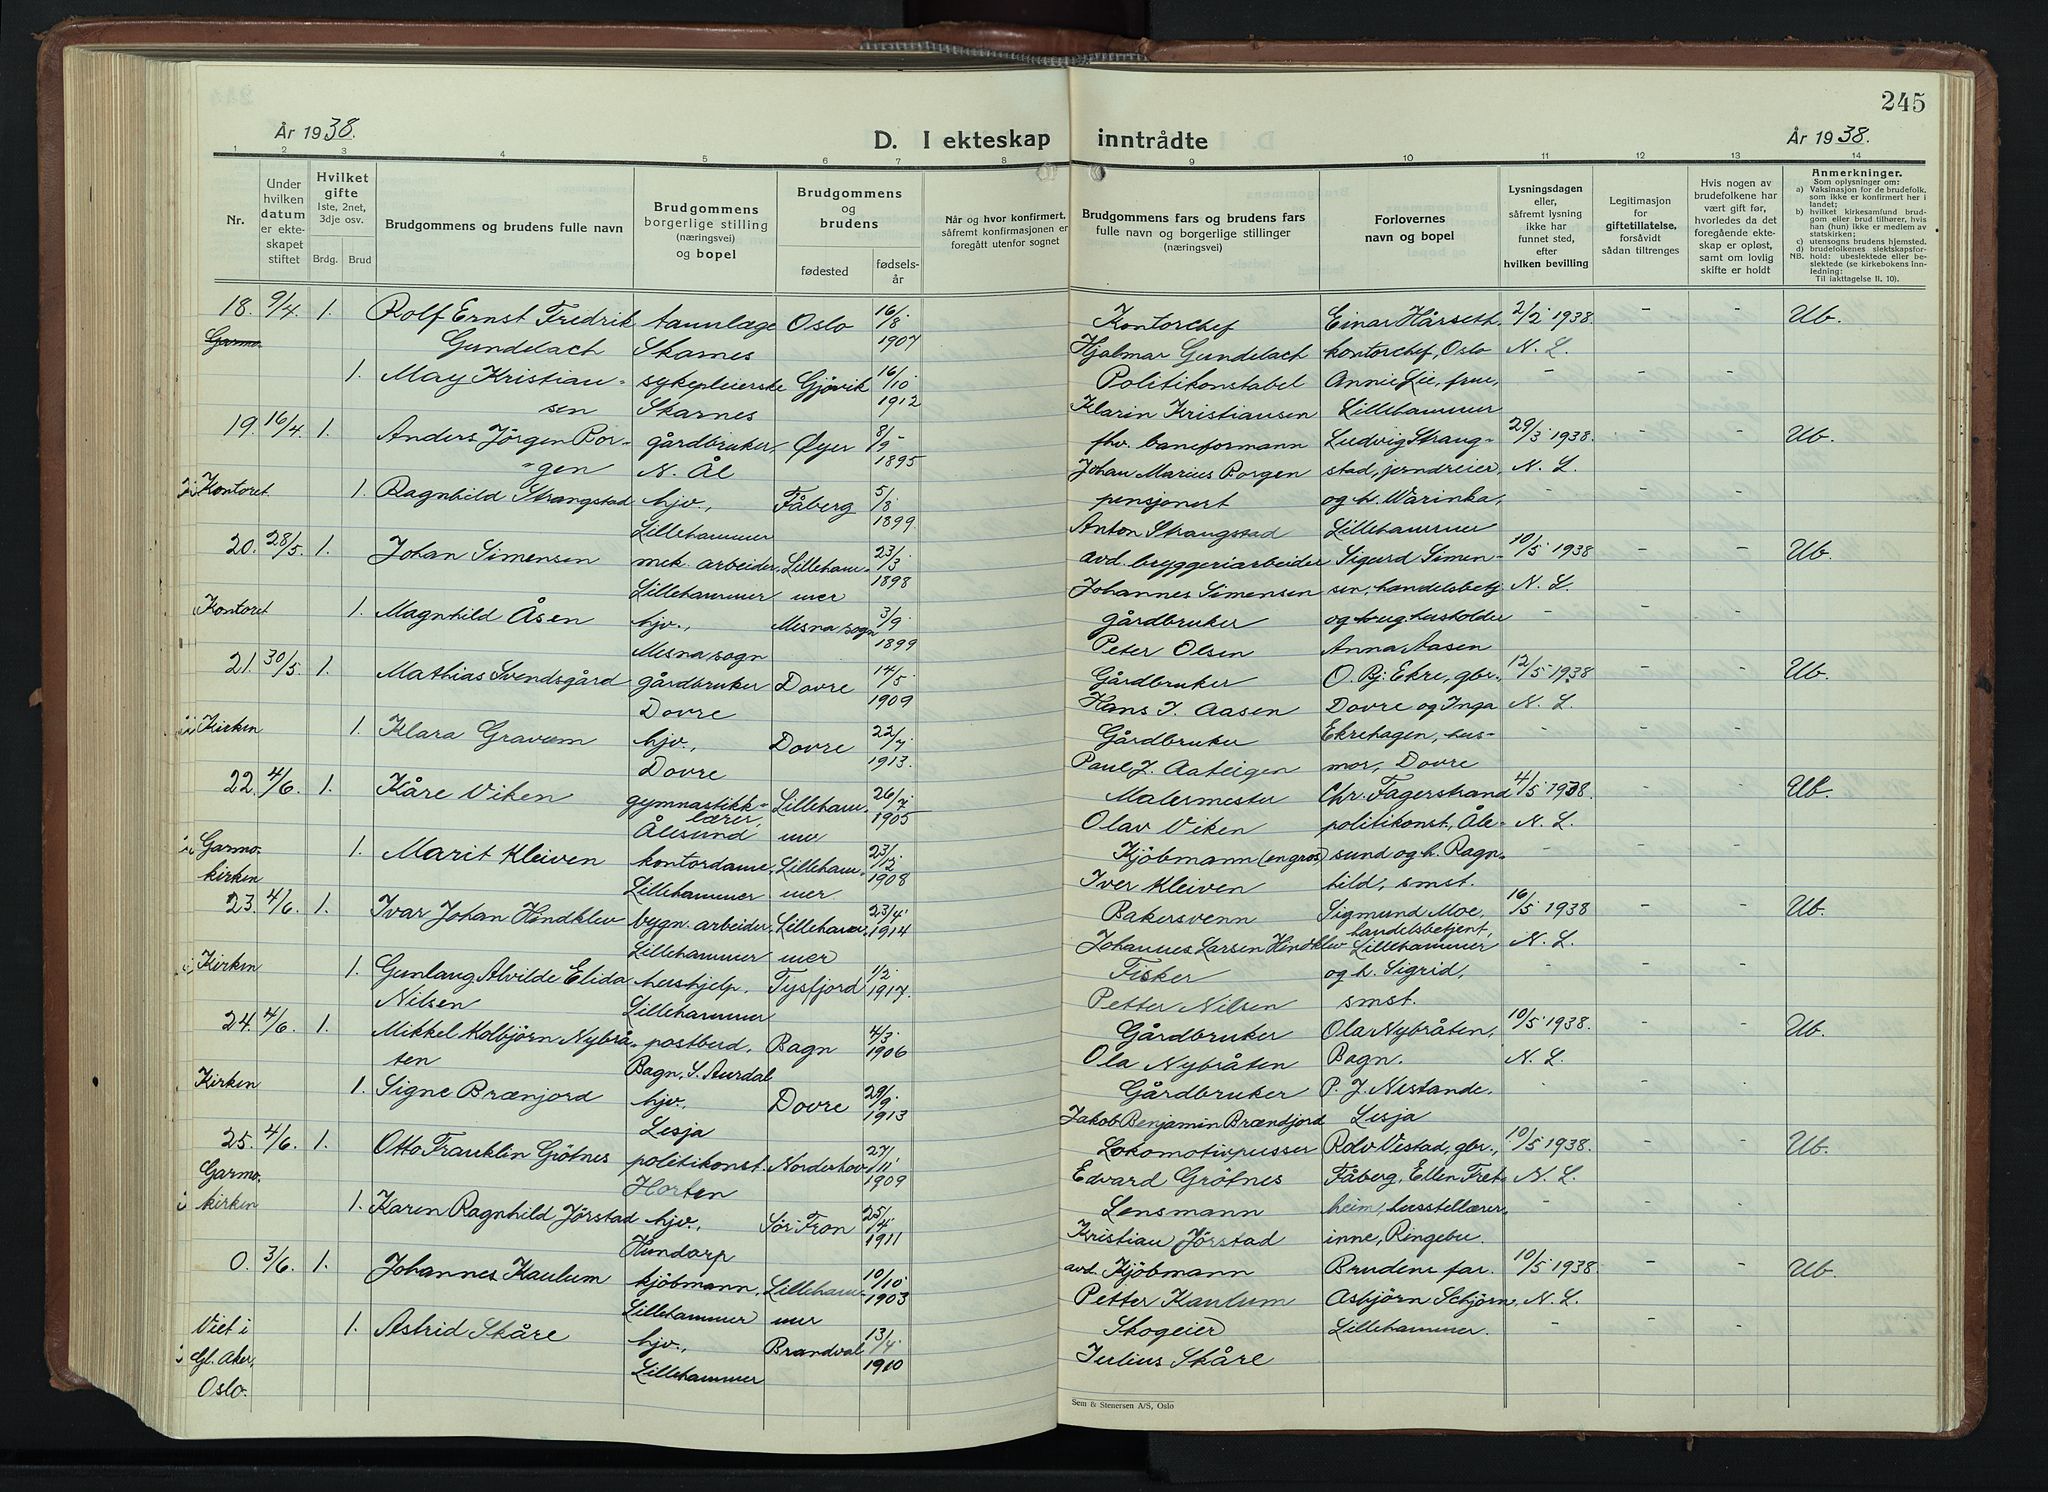 245
År 1938.
D. I ekteskap inntrådte
År 1938.
1 2 3 4 5 6 7 8 9 10 11 12 13 14
Nr.
Under hvilken datum er ekteskapet stiftet
Hvilket gifte 1ste, 2net, 3dje osv.
Brdg. Brud
Brudgommens og brudens fulle navn
Brudgommens borgerlige stilling (næringsvei) og bopel
Brudgommens og brudens
fødested
fødselsår
Når og hvor konfirmert, såfremt konfirmasjonen er foregått utenfor sognet
Brudgommens fars og brudens fars fulle navn og borgerlige stillinger (næringsvei)
Forlovernes navn og bopel
Lysningsdagen eller, såfremt lysning ikke har funnet sted, efter hvilken bevilling
Legitimasjon for giftetillatelse, forsåvidt sådan tiltrenges
Hvis nogen av brudefolkene har vært gift før, hvorledes da det foregående ekteskap er opløst, samt om lovlig skifte er holdt
Anmerkninger.
Som oplysninger om:
a) Vaksinasjon for de brudefolk, som ikke er konfirmert her i landet;
b) hvilket kirkesamlund brudgom eller brud tilhører, hvis han (hun) ikke er medlem av statskirken;
c) utensogns brudens hjemsted.
d) brudefolkenes slektskapsforhold: ubeslektede eller beslektede (se kirkebokens Innledning:
NB.
Til iakttagelse II. 10).
18. 9/4. 1. Rolf Ernst Fredrik tannlæge Oslo 16/8 1907 Kontorchef Einar Hårseth, 2/2 1938. - - Ub.
Garmo. Gundelach Skarnes Hjalmar Gundelach kontorchef, Oslo N. L.
1. May Kristian- sykepleierske Gjøvik 16/10 1912 Politikonstabel Annie Lie, frue, - - -
sen Skarnes Klarin Kristiansen Lillehammer
19. 16/4. 1. Anders Jörgen Bor- gårdbruker, Øyer 8/9 1895 fhv. baneformann Ludvig Strang- 29/3 1938. - - Ub.
gen N. Ål Johan Marius Borgen stad, jerndreier, N. L.
Kontoret 1. Ragnhild Strangstad hjv., Fåberg 5/8 1899 pensjonert og h. Warinka, - - -
Lillehammer Anton Strangstad Lillehammer
20. 28/5. 1. Johan Simensen mek. arbeider, Lilleham- 23/3 1898 avd. bryggeriarbeider Sigurd Simen- 10/5 1938 - - Ub.
Lillehammer mer Johannes Simensen sen, handelsbetj. N. L.
Kontoret 1. Magnhild Åsen hjv., Mesna sogn 3/9 1899 gårdbruker og husholder - - -
Mesna sogn Peter Olsen Anna Aasen
21. 30/5. 1. Mathias Svendsgård gårdbruker Dovre 14/5 1909 Gårdbruker O. Bj. Ekre, gbr., 12/5 1938 - - Ub.
Dovre Hans J. Aasen Dovre og Inga N. L.
Kirken 1. Klara Gravem hjv., Dovre 22/7 1913. Gårdbruker Ekrehagen, hus- - - -
Dovre Paul J. Aateigen mor, Dovre
22. 4/6. 1. Kåre Viken gymnastikk- Lilleham- 26/7 1905 Malermester Chr. Fagerstrand 4/5 1938. - - Ub.
lærer, Ålesund mer Olav Viken politikonst, Åle- N. L.
Garmo- 1. Marit Kleiven kontordame, Lilleham- 23/12 1908 Kjöbmann (engros) sund og h. Ragn- - - -
kirken Lillehammer mer. Iver Kleiven hild, smst.
23. 4/6. 1. Ivar Johan Hindklev bygn. arbeider, Lilleham- 23/4 1914 Bakersvenn Sigmund Moe, 16/5 1938 - - Ub.
Lillehammer mer Johannes Larsen Hindklev handelsbetjent, Lillehammer N. L.
Kirken 1. Gunlaug Alvilde Elida hushjelp, Tysfjord 1/2 1917. Fisker og h. Sigrid, - - -
Nilsen Lillehammer Petter Nilsen smst.
24. 4/6. 1. Mikkel Kolbjörn Nybrå- postbud, Bagn 4/3 1906 Gårdbruker Ola Nybråten, 10/5 1938. - - Ub.
ten Bagn, S. Aurdal Ola Nybråten Bagn. N. L.
Kirken 1. Signe Brænjord hjv., Dovre 29/9 1913 Gårdbruker P. J. Nestande. - - -
Lesja Jakob Benjamin Brændjord Lesja
25. 4/6. 1. Otto Franklin Grötnes politikonst. Norderhov 27/11 1909 Lokomotivpusser Rolv Vestad, gbr., 10/5 1938. - - Ub.
Garmo- Horten Edvard Grötnes Fåberg, Ellen Fret- N. L.
kirken 1. Karen Ragnhild Jörstad hjv., Sör-Fron 25/4 1911 Lensmann heim, husstellærer- - - -
Hundorp Kristian Jörstad inne, Ringebu.
0. 3/6. 1. Johannes Kaulum kjöbmann, Lilleham- 10/10 1903 avd. Kjöbmann Brudens far. 10/5 1938. - - Ub.
Lillehammer mer Petter Kaulum Asbjörn Schjörn, N. L.
Viet i 1. Astrid Skåre hjv., Brandval 13/4 1910 Skogeier Lillehammer. - - -
Gl. Aker, Lillehammer Julius Skåre
Oslo.
Sem & Stenersen A/S, Oslo